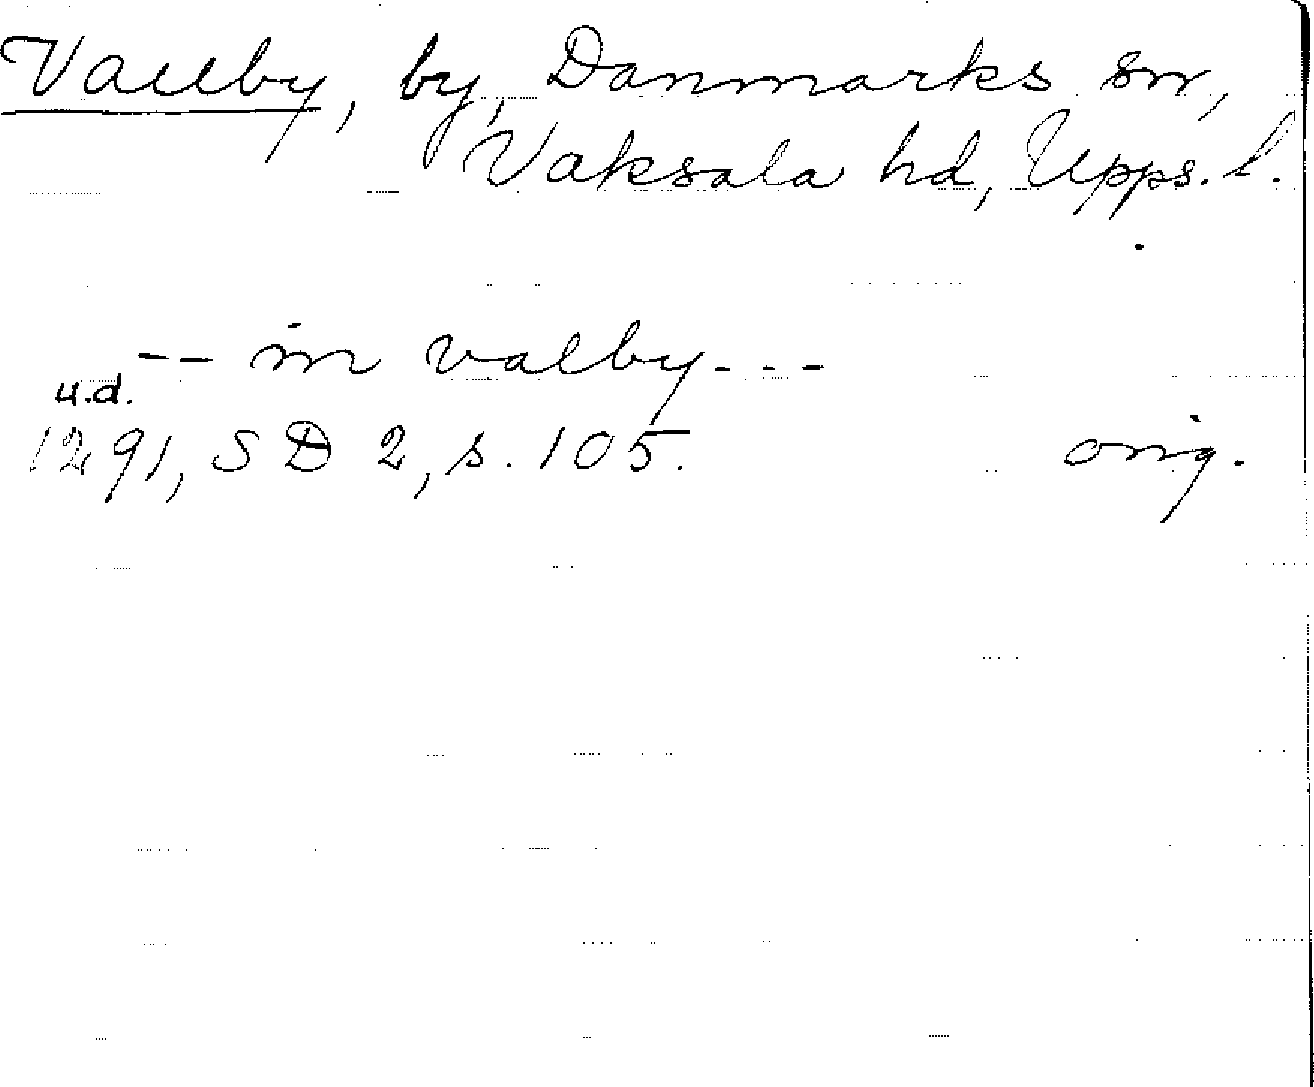 Vallby, by, Danmarks sn,
Vaksala hd, Upps. l.
-- in valby - - -
u.d.
1291, SD 2, s. 105. orig.